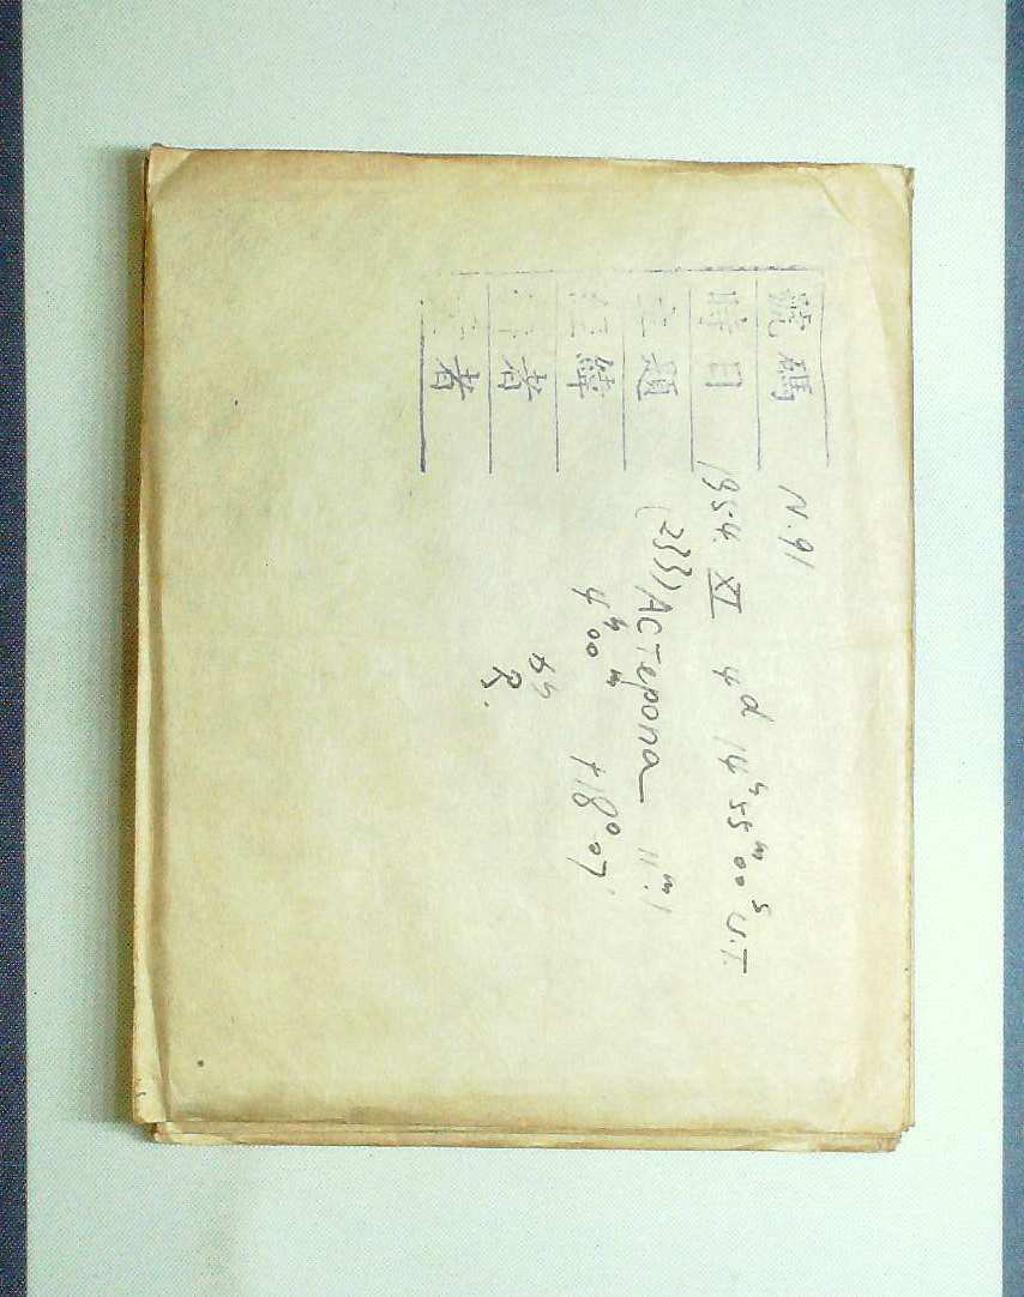 號碼 N.91
時日 1954. XI 4ᵈ 14ʰ55ᵐ00ˢ U.T.
題 (233) Астеропа 11ᵐ.1
經緯 4ʰ00ᵐ +18°.07'
者
者